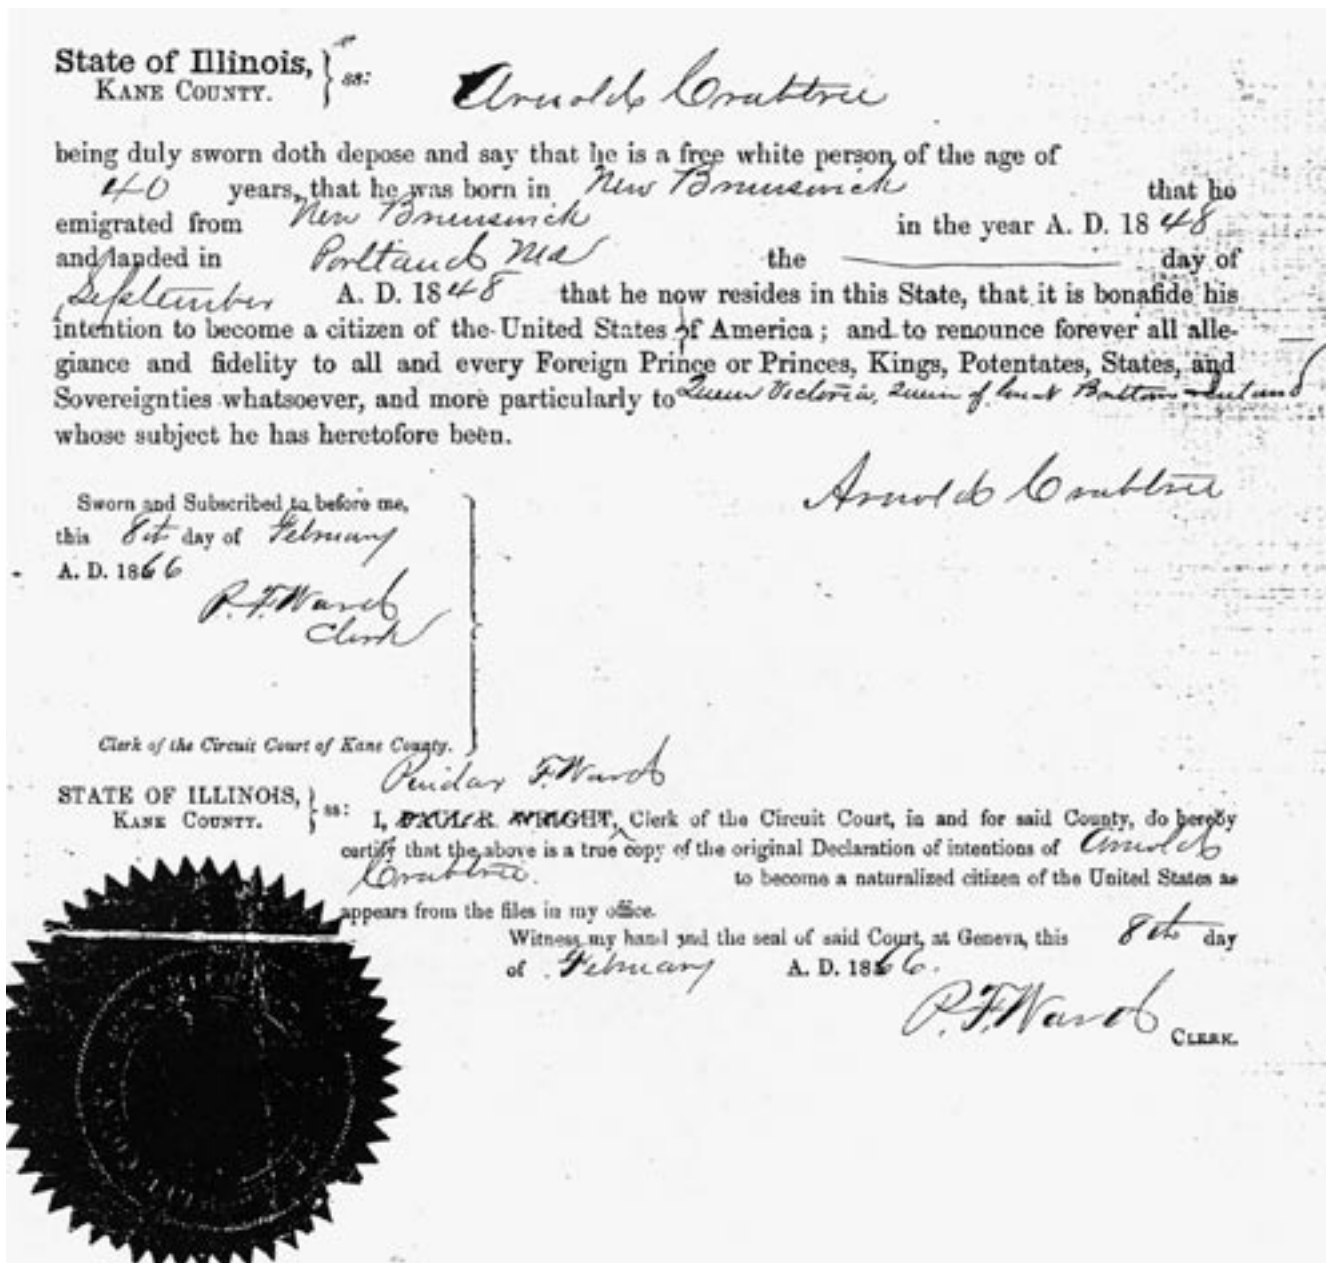 State of Illinois,
KANE COUNTY. } ss: Arnold Crabtree
being duly sworn doth depose and say that he is a free white person, of the age of
40 years, that he was born in New Brunswick that he
emigrated from New Brunswick in the year A. D. 1848
and landed in Portland Me the day of
September A. D. 1848 that he now resides in this State, that it is bonafide his
intention to become a citizen of the United States of America; and to renounce forever all alle-
giance and fidelity to all and every Foreign Prince or Princes, Kings, Potentates, States, and
Sovereignties whatsoever, and more particularly to Queen Victoria, Queen of Great Brittan Ireland
whose subject he has heretofore been.
Arnold Crabtree
Sworn and Subscribed to before me,
this 8th day of February
A. D. 1866
P. F. Ward
Clerk
Clerk of the Circuit Court of Kane County.
F. Ward
STATE OF ILLINOIS,
KANE COUNTY. } ss: I, WRIGHT, Clerk of the Circuit Court, in and for said County, do hereby
certify that the above is a true copy of the original Declaration of intentions of Arnold
Crabtree. to become a naturalized citizen of the United States as
appears from the files in my office.
Witness my hand and the seal of said Court, at Geneva, this 8th day
of February A. D. 1866.
P. F. Ward CLERK.